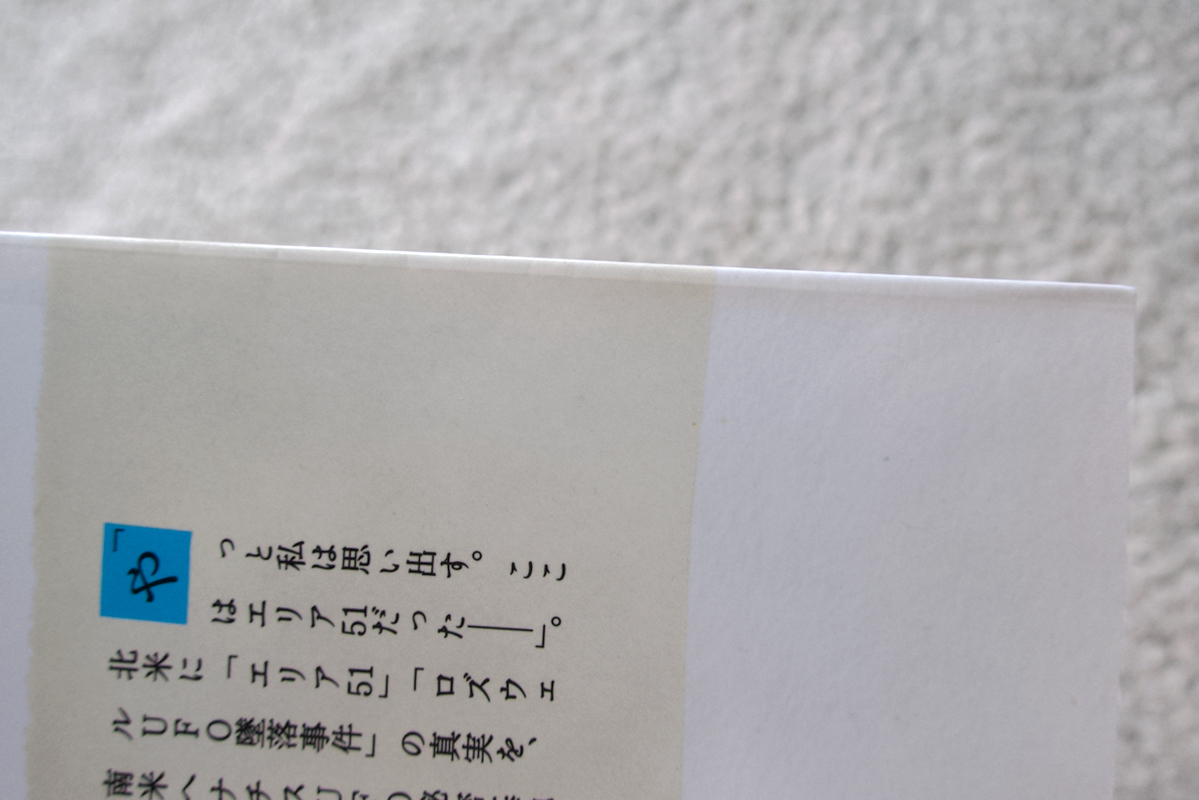 「やっと私は思い出す。ここ
はエリア51だった――」。
北米に「エリア51」「ロズウェ
ルUFO墜落事件」の真実を、
南米へナチスUFOの